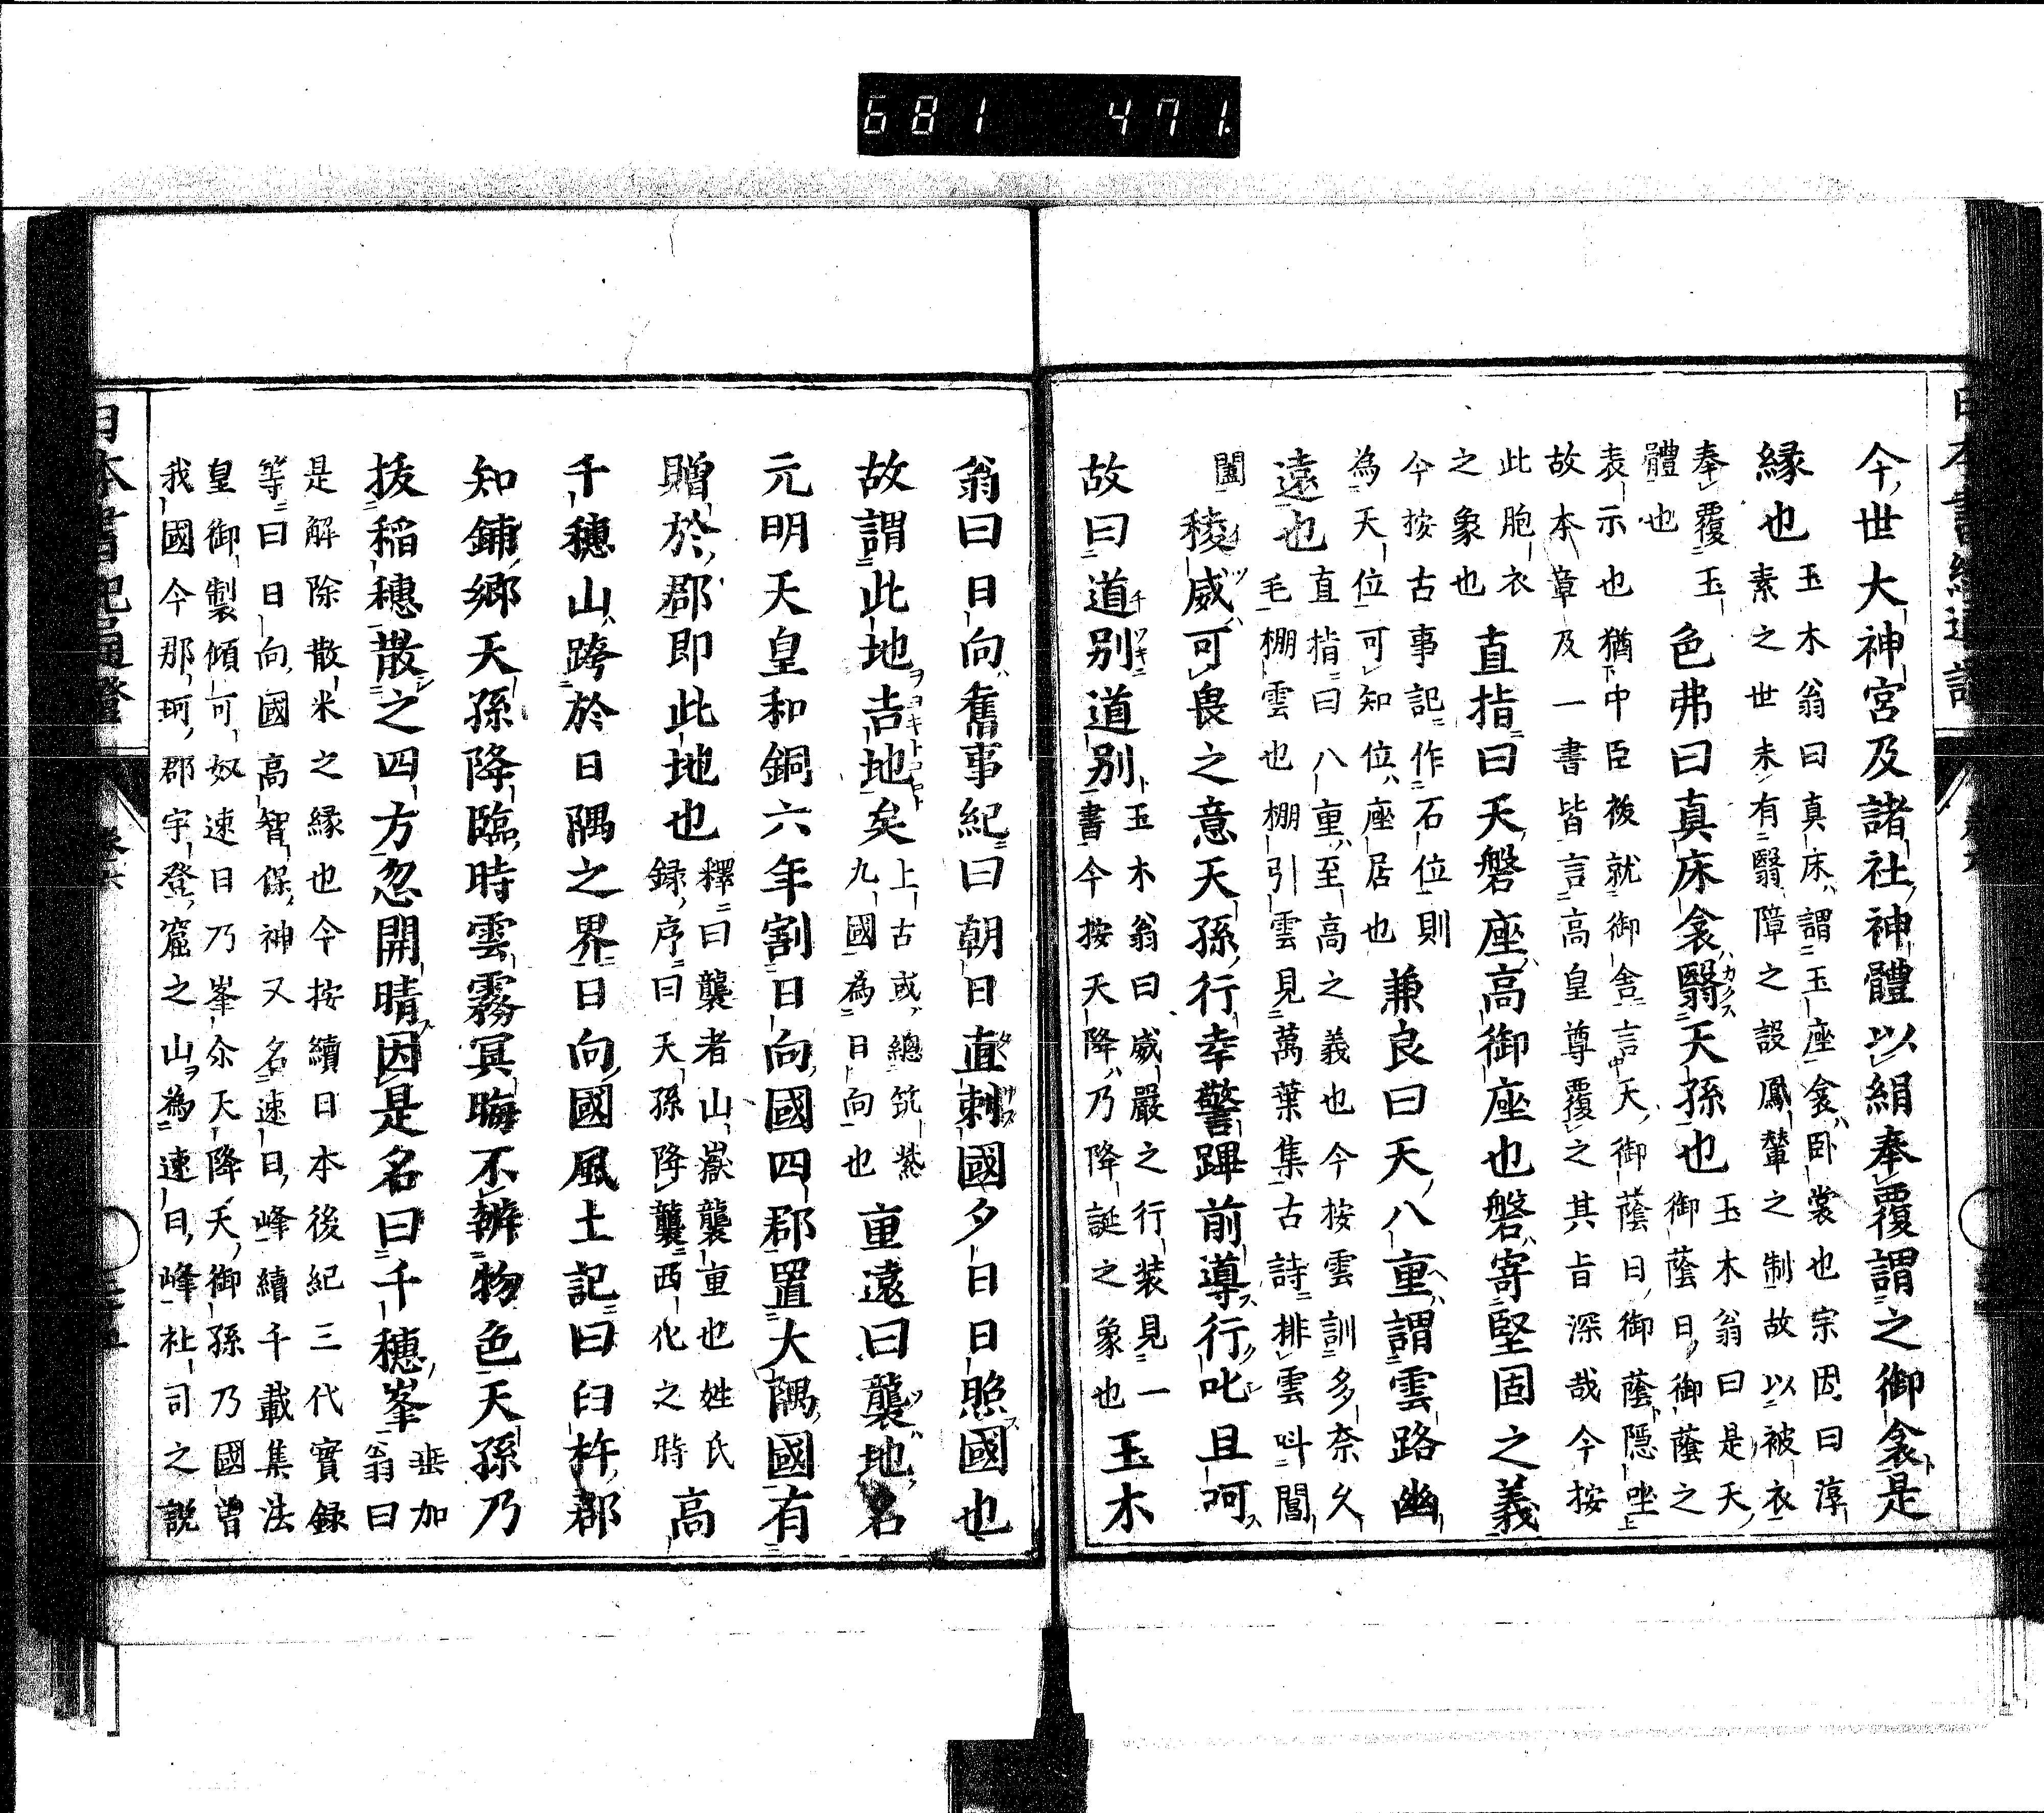 今世大神宮及諸社神體以絹奉覆謂之御衾是
縁也
玉木翁曰真床謂玉座衾卧裳也宗因曰淳
素之世未有翳障之設鳳輦之制故以被衣
奉覆玉
體也
色弗曰真床衾翳天孫也
玉木翁曰是天
御蔭日御蔭之
表示也猶中臣祓就御舎言天御蔭日御蔭隱坐
故本章及一書皆言高皇尊覆之其旨深哉今按
此胞衣
之象也
直指曰天磐座高御座也磐寄堅固之義
今按古事記作石位則
為天位可知位座居也
兼良曰天八重謂雲路幽
遠也
直指曰八重至高之義也今按雲訓多奈久
毛棚雲也棚引雲見萬葉集古詩排雲呌閶
闔
稜威可畏之意天孫行幸警蹕前導行叱且呵
故曰道別道別
玉木翁曰威嚴之行装見一
書今按天降乃降誕之象也
玉木
翁曰日向舊事紀曰朝日直刺國夕日日照國也
故謂此地吉地矣
上古或總筑紫
九國為日向也
重遠曰襲地名
元明天皇和銅六年割日向國四郡置大隅國有
贈於郡即此地也
釋曰襲者山嶽襲重也姓氏
録序曰天孫降襲西化之時
高
千穗山跨於日隅之界日向國風土記曰臼杵郡
知鋪郷天孫降臨時雲霧冥晦不辨物色天孫乃
拔稲穗散之四方忽開晴因是名曰千穗峯
垂加
翁曰
是解除散米之縁也今按續日本後紀三代實録
等曰日向國高智保神又名速日峰續千載集法
皇御製傾可奴速日乃峯尒天降天御孫乃國曽
我國今那珂郡宇登窟之山為速日峰社司之説
日本書紀通證
681 471